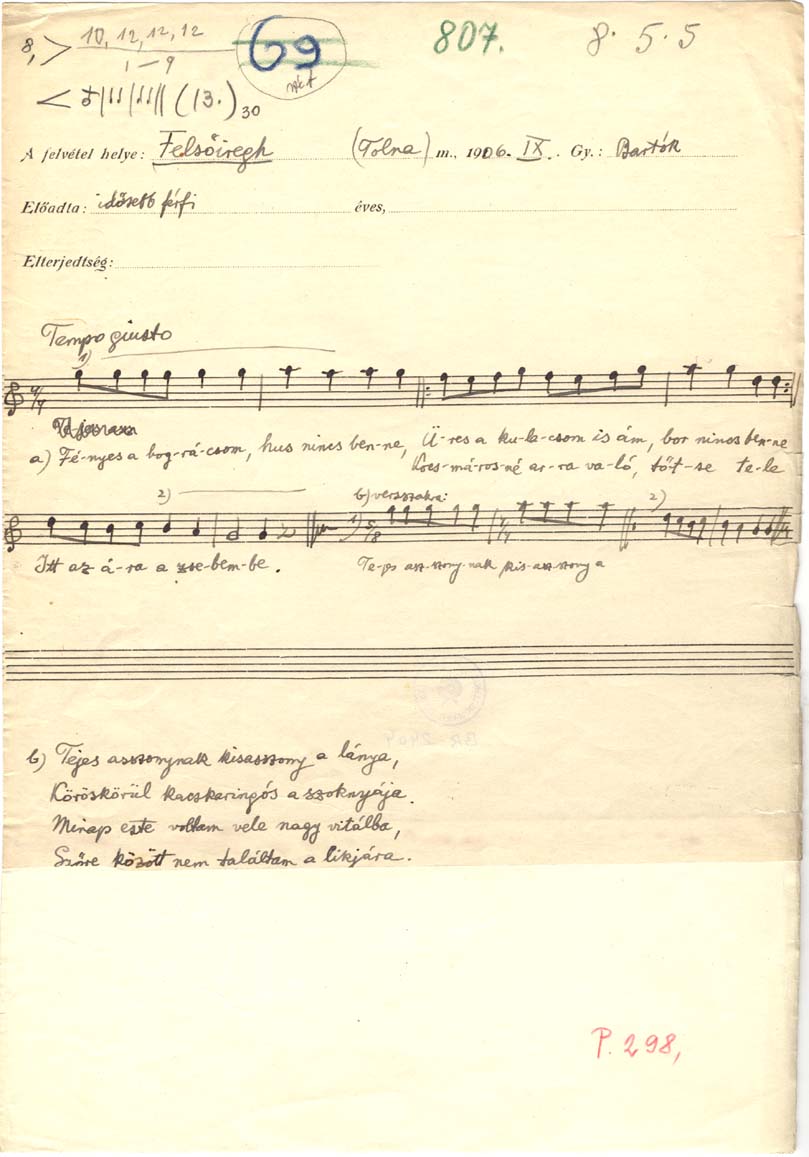 8, > 10, 12, 12, 12
1-9
69
807.
8. 5. 5
(13.) 30
A felvétel helye: Felsőiregh (Tolna) m., 1906. IX. Gy.: Bartók
Előadta: idősebb férfi éves,
Elterjedtség:
Tempo giusto
1)
4/4
a) Fé-nyes a bog-rá-csom, hus nincs ben-ne, Ü-res a ku-la-csom is ám, bor nincs ben-ne
Kocs-má-ros-né ar-ra va-ló, tőt-se te-le
2) b) versszakra: 2)
1) 5/8
Itt az á-ra a zse-bem-be. Te-jes asz-szony-nak kis-asz-szony a
b) Tejes asszonynak kisasszony a lánya,
Köröskörül kacskaringós a szoknyája.
Minap este voltam vele nagy vitálba,
Szőre között nem találtam a likjára.
BR 2404
P. 298,